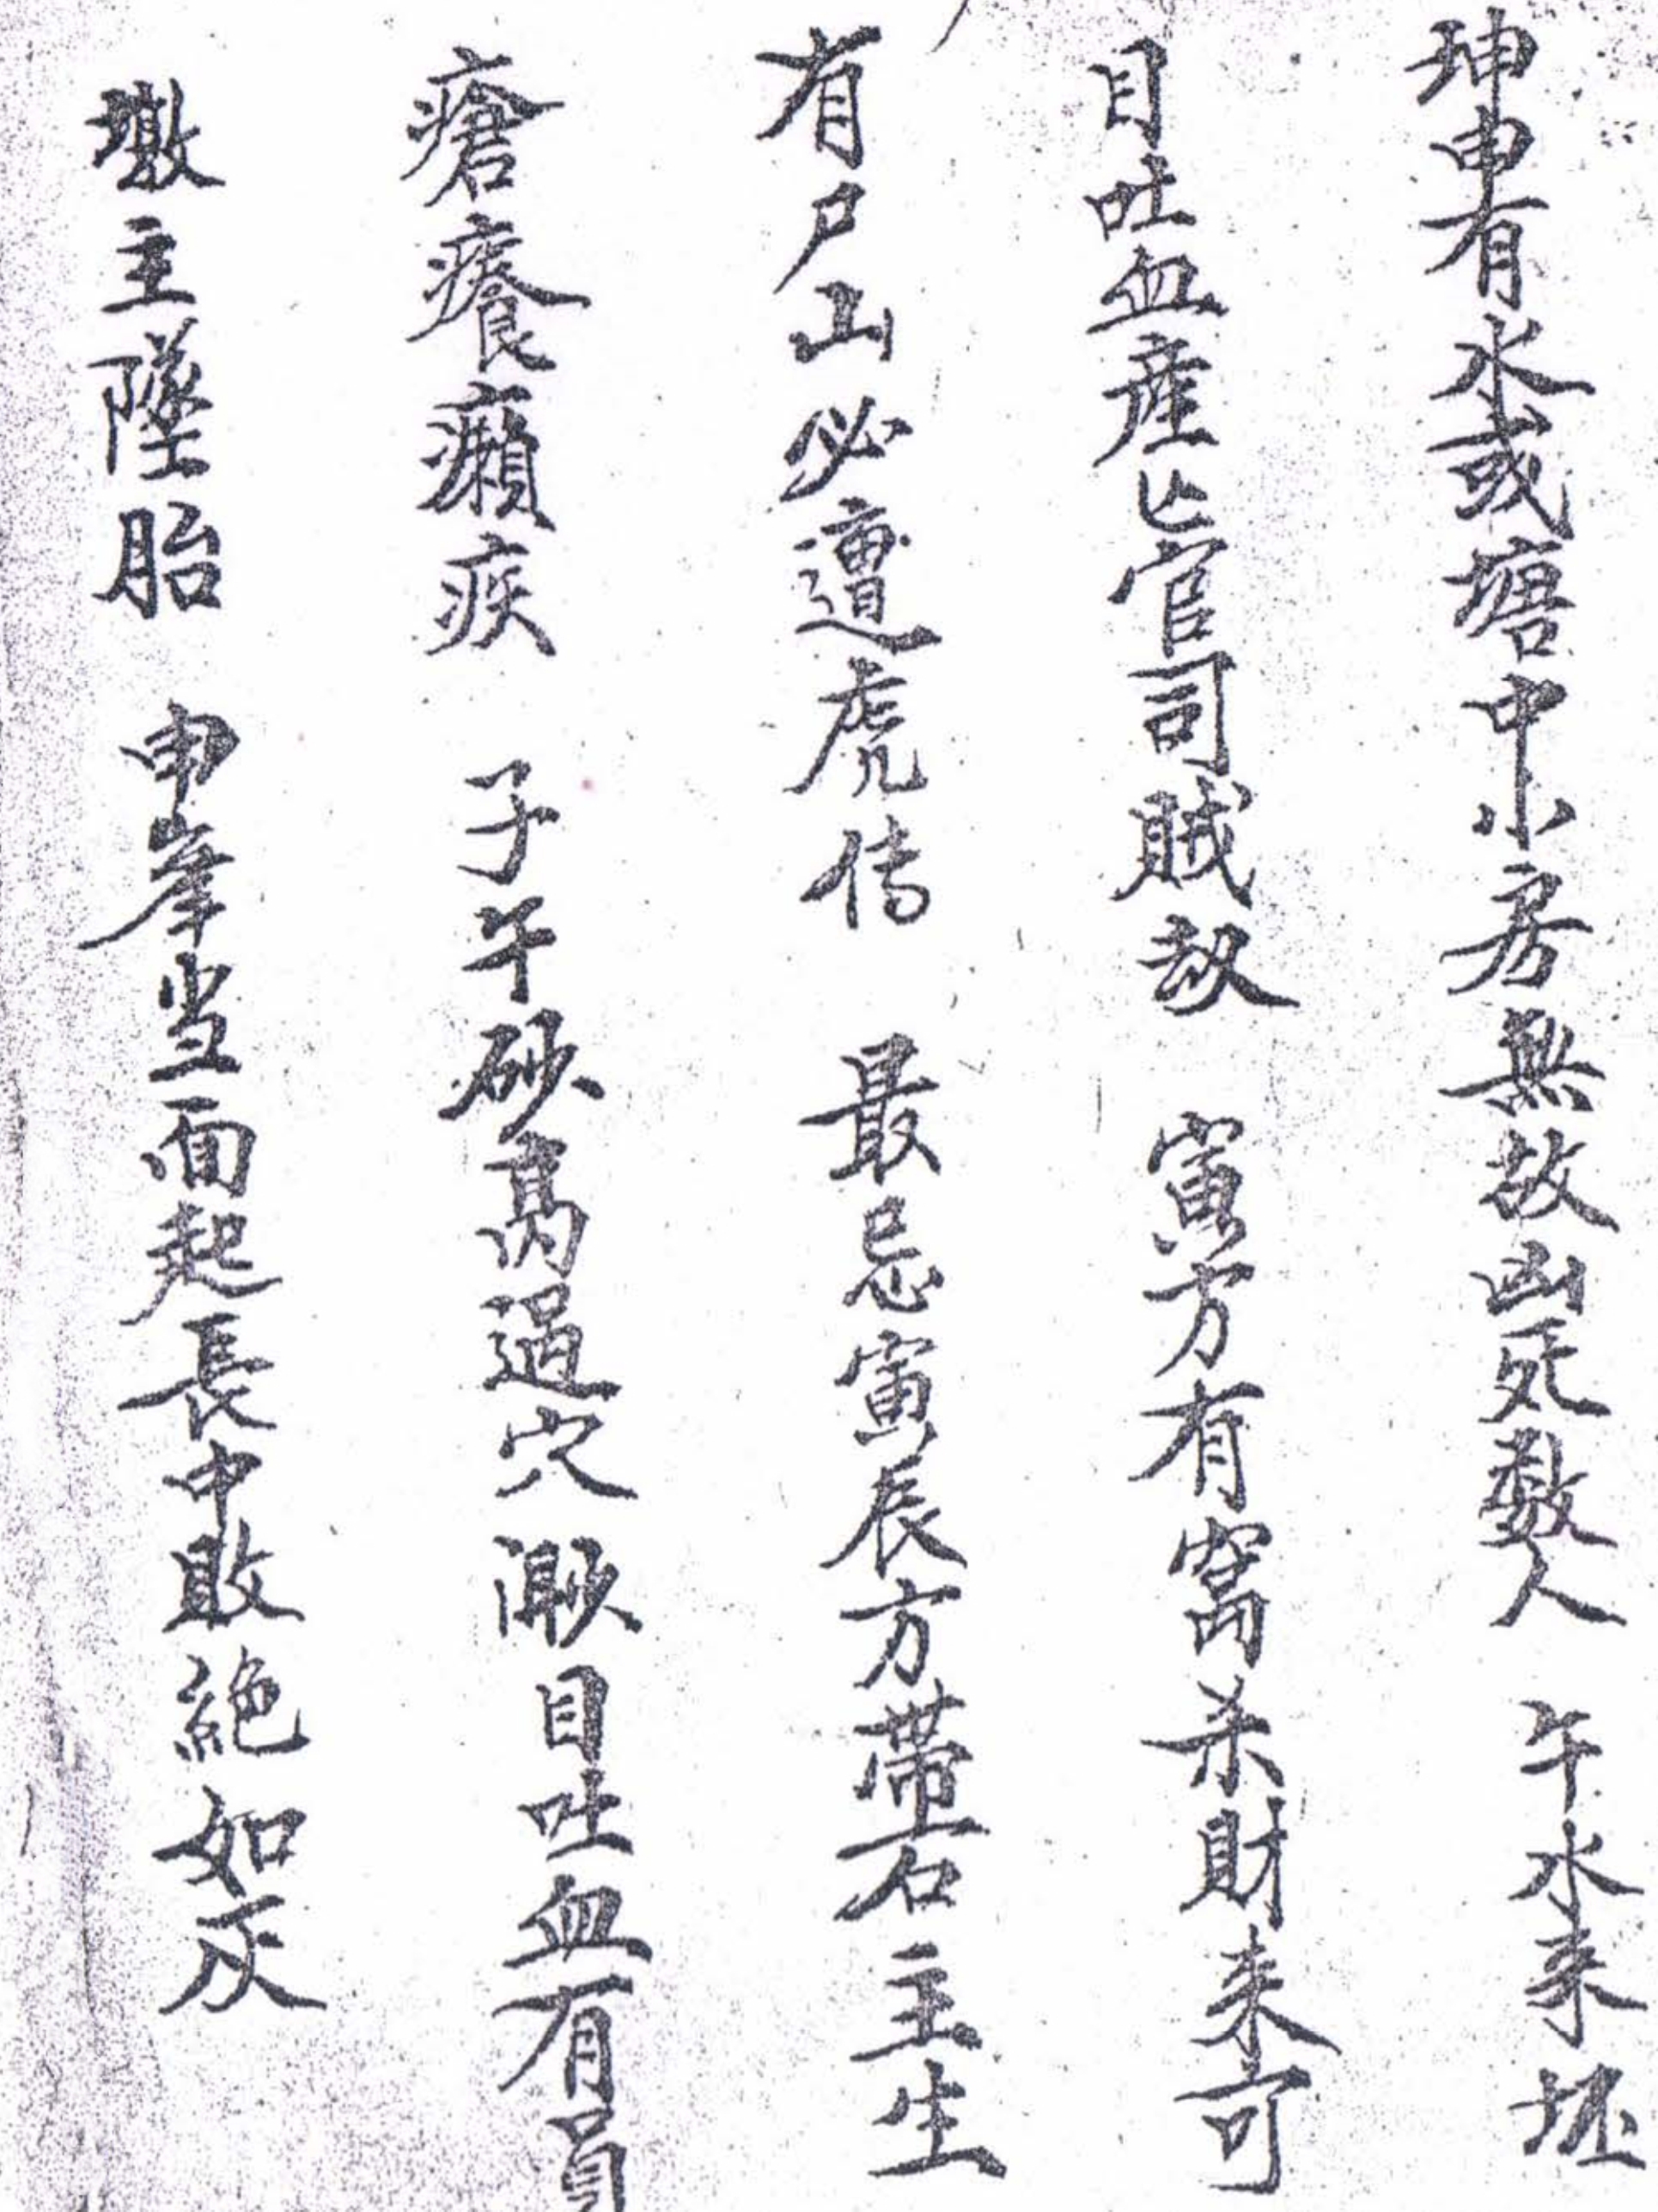 坤申有水或塘中小房無故凶死数人 午水来坯
目吐血産亡官司賊劫 寅方有窩杀財来可
有尸山必遭虎傳 最忌寅辰方帶石主生
瘡癢癩疾 子午砂高過穴 目吐血有員
墩主墜胎 申峯当面起長中敗絕如灰